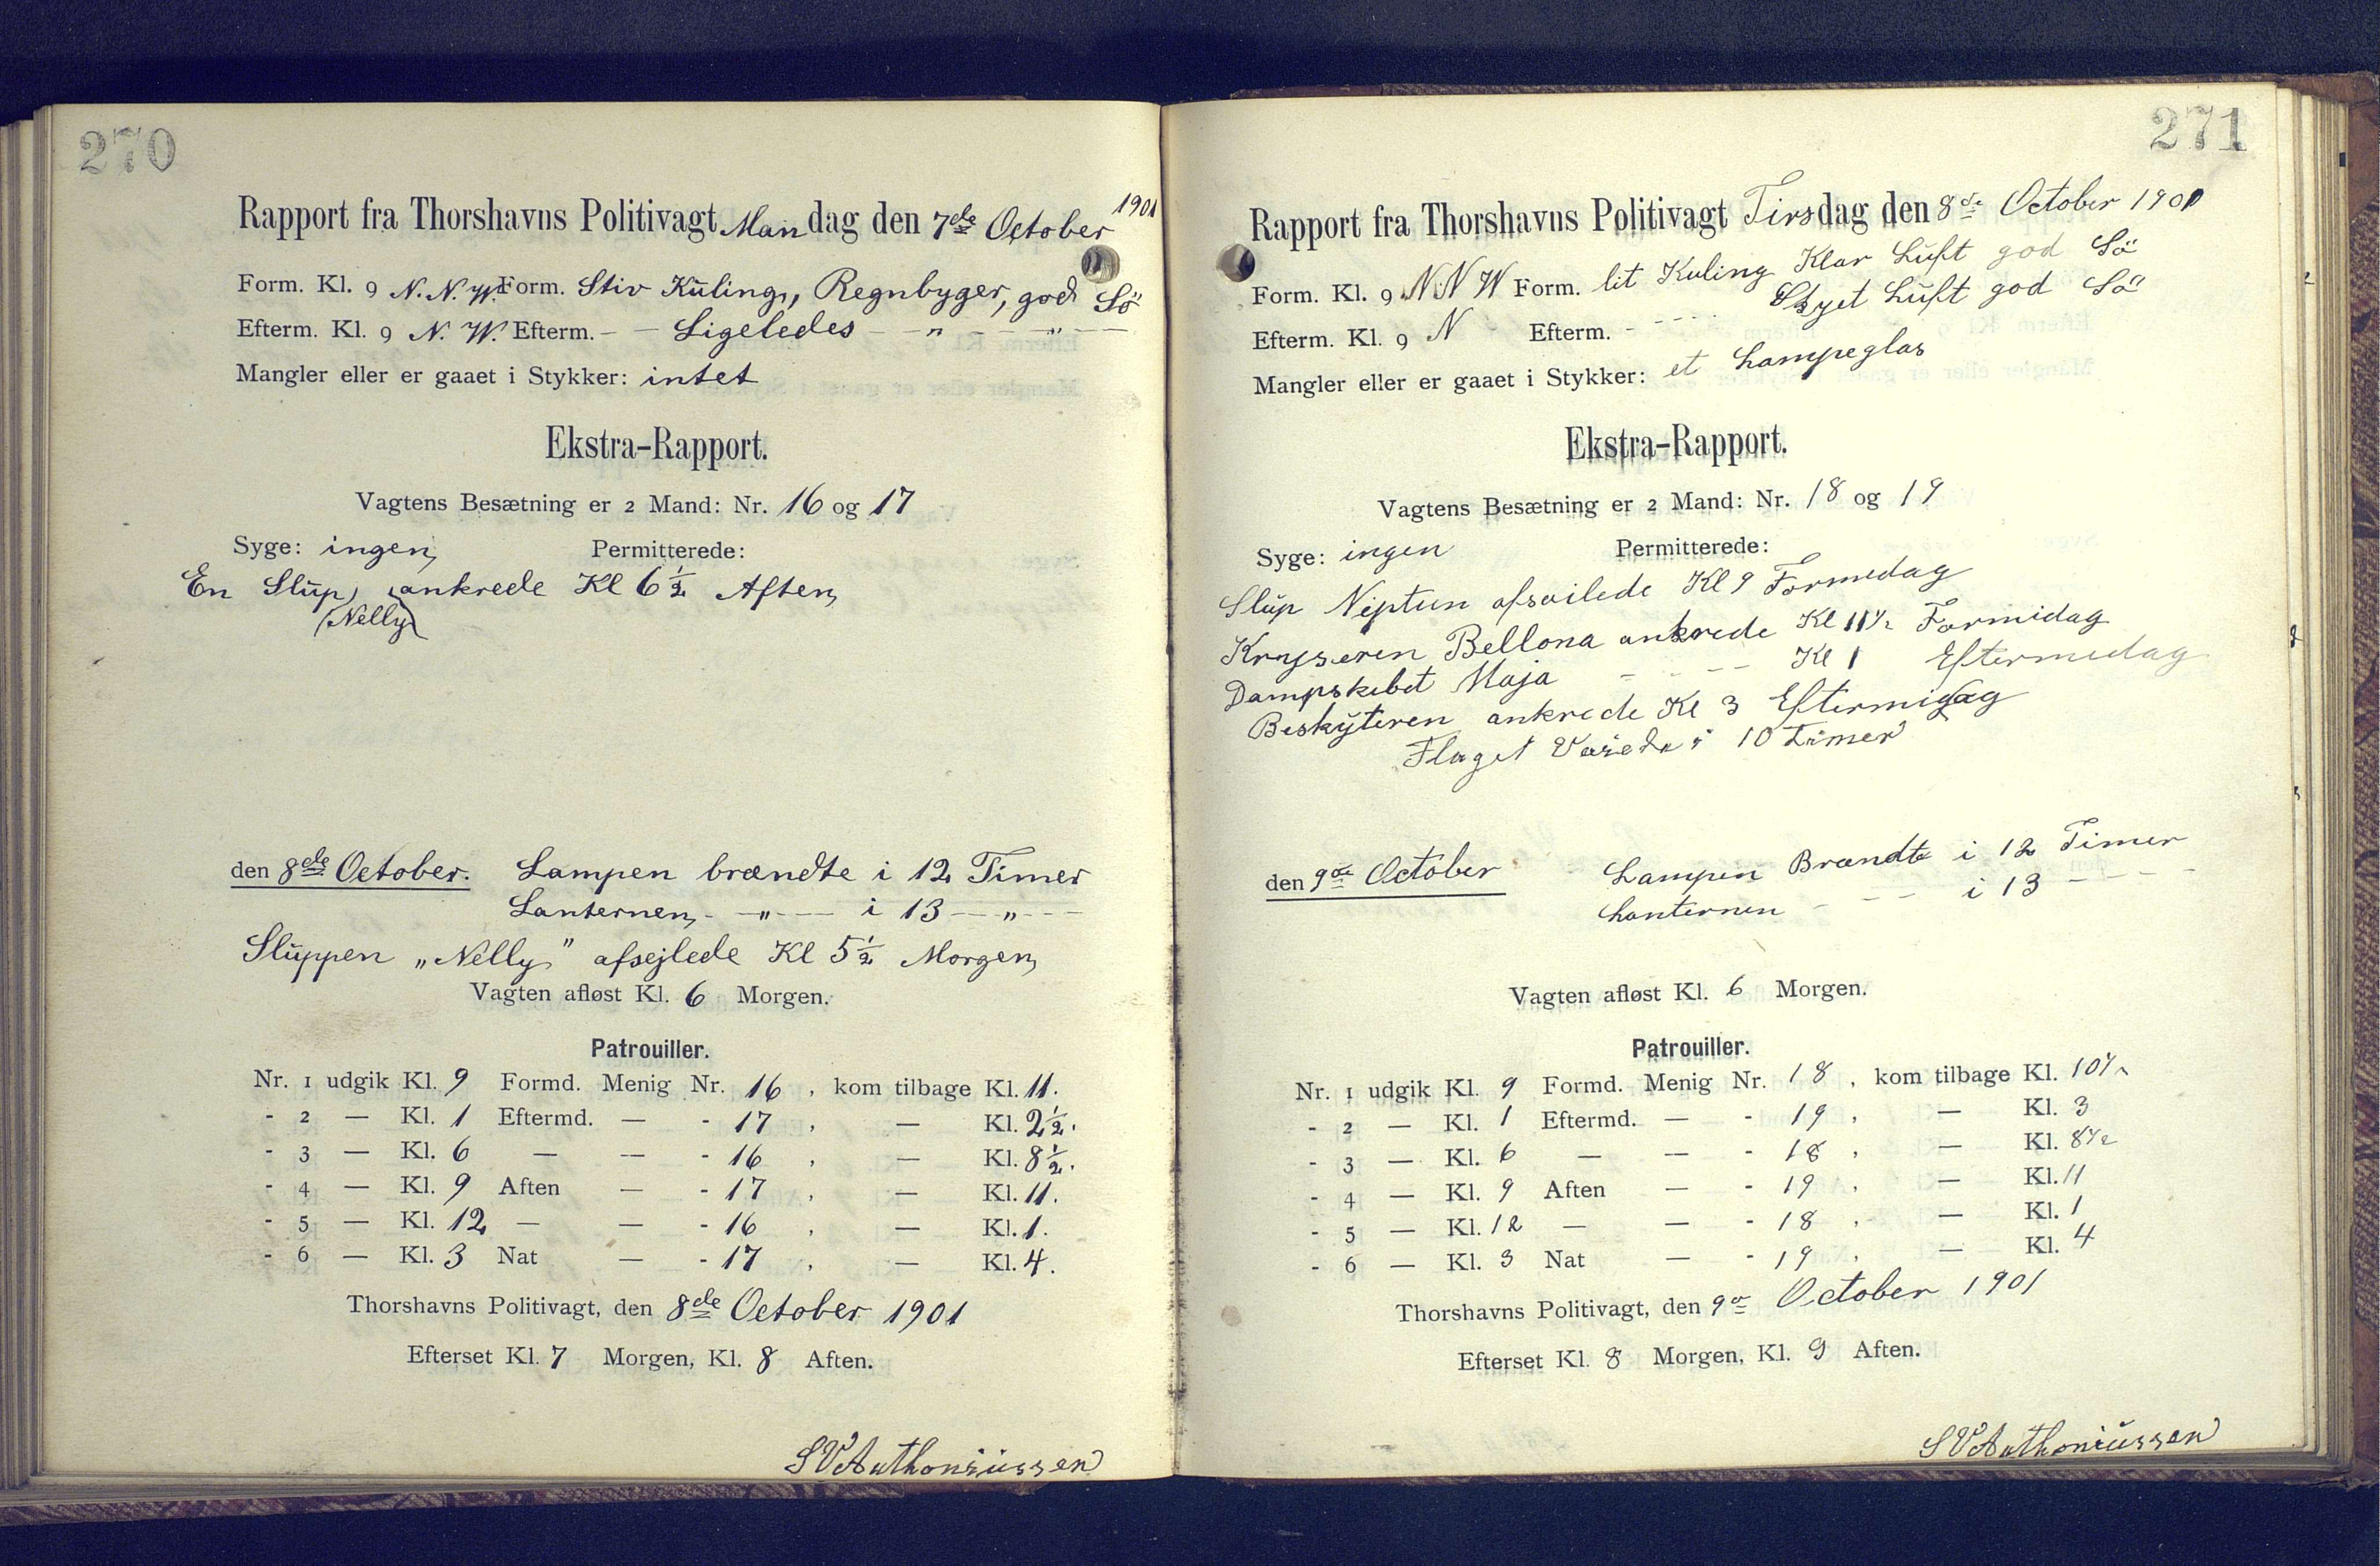 270
Rapport fra Thorshavns Politivagt Mandag den 7de October 1901
Form. Kl. 9 N. N. W. Form. Stiv Kuling, Regnbyger, god Sö
Efterm. Kl. 9 N. W. Efterm. - - Ligeledes - - " - - - " - -
Mangler eller er gaaet i Stykker: intet
Ekstra-Rapport.
Vagtens Besætning er 2 Mand: Nr. 16 og 17
Syge: ingen, Permitterede:
En Slup, ankrede Kl 6 1/2 Aften,
(Nelly)
den 8de October. Lampen brændte i 12 Timer
Lanternen, - — " — i 13 — " - - -
Sluppen „Nelly" afsejlede Kl 5 1/2 Morgen,
Vagten afløst Kl. 6 Morgen.
Patrouiller.
Nr. 1 udgik Kl. 9 Formd. Menig Nr. 16 , kom tilbage Kl. 11.
- 2 — Kl. 1 Eftermd. — - 17 , — Kl. 2 1/2.
- 3 — Kl. 6 — — - 16 , — Kl. 8 1/2.
- 4 — Kl. 9 Aften — - 17 , — Kl. 11.
- 5 — Kl. 12 — — - 16 , — Kl. 1.
- 6 — Kl. 3 Nat — - 17 , — Kl. 4.
Thorshavns Politivagt, den 8de October 1901
Efterset Kl. 7 Morgen, Kl. 8 Aften.
SVAnthoniussen
271
Rapport fra Thorshavns Politivagt Tirsdag den 8de October 1901
Form. Kl. 9 N N W Form. lit Kuling Klar Luft god Sö
Efterm. Kl. 9 N Efterm. - - - - - Skyet Luft god Sö
Mangler eller er gaaet i Stykker: et Lampeglas
Ekstra-Rapport.
Vagtens Besætning er 2 Mand: Nr. 18 og 19
Syge: ingen Permitterede:
Slup Neptun afsailede Kl 9 Formedag
Krysseren Bellona ankrede Kl 11 1/2 Formidag
Dampskibet Maja - - - Kl 1 Eftermedag
Beskyteren ankrede Kl 3 Eftermidag
Flaget Vaiede i 10 Timer
den 9de October Lampen Brændte i 12 Timer
Lanternen - - - i 13 - - - -
Vagten afløst Kl. 6 Morgen.
Patrouiller.
Nr. 1 udgik Kl. 9 Formd. Menig Nr. 18 , kom tilbage Kl. 10 1/2
- 2 — Kl. 1 Eftermd. — - 19 , — Kl. 3
- 3 — Kl. 6 — — - 18 , — Kl. 8 1/2
- 4 — Kl. 9 Aften — - 19 , — Kl. 11
- 5 — Kl. 12 — — - 18 , — Kl. 1
- 6 — Kl. 3 Nat — - 19 , — Kl. 4
Thorshavns Politivagt, den 9de October 1901
Efterset Kl. 8 Morgen, Kl. 9 Aften.
SVAnthoniussen